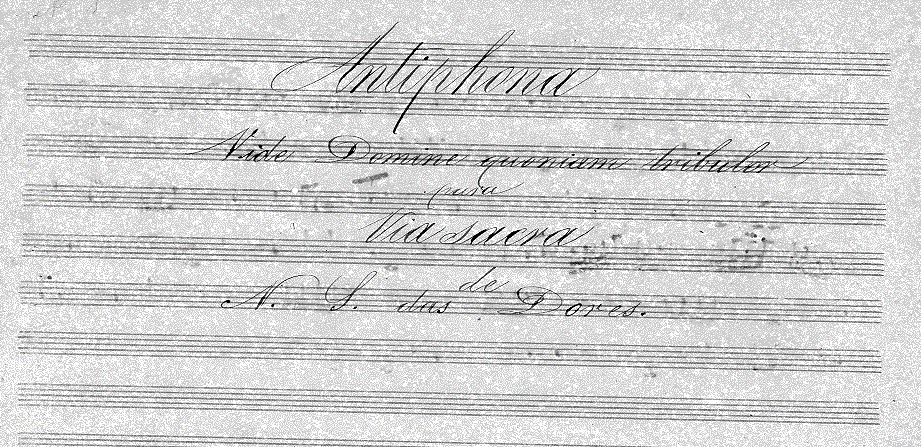 Antiphona
Vide Domine quoniam tribulor
para
Via sacra
de
N. S. das Dores.